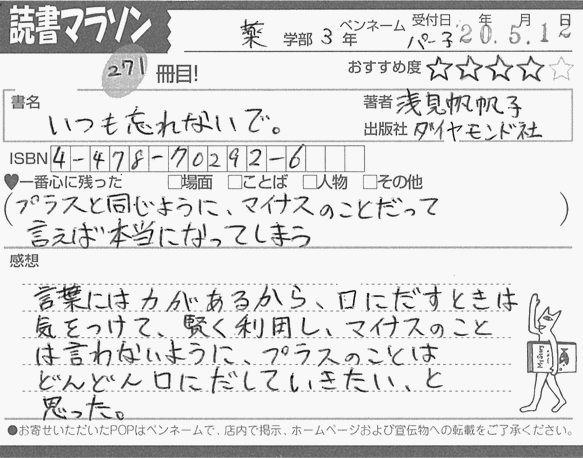 読書マラソン
薬 学部 3 年 ペンネーム パー子 受付日 20年 5.月12日
271 冊目!
おすすめ度 ☆☆☆☆☆
書名 いつも忘れないで。
著者 浅見帆帆子
出版社 ダイヤモンド社
ISBN 4-478-70292-6
♥一番心に残った □場面 □ことば □人物 □その他
(プラスと同じように、マイナスのことだって
言えば本当になってしまう)
感想
言葉には力があるから、口にだすときは
気をつけて、賢く利用し、マイナスのこと
は言わないように、プラスのことは
どんどん口にだしていきたい、と
思った。
●お寄せいただいたPOPはペンネームで、店内で掲示、ホームページおよび宣伝物への転載をご了承ください。